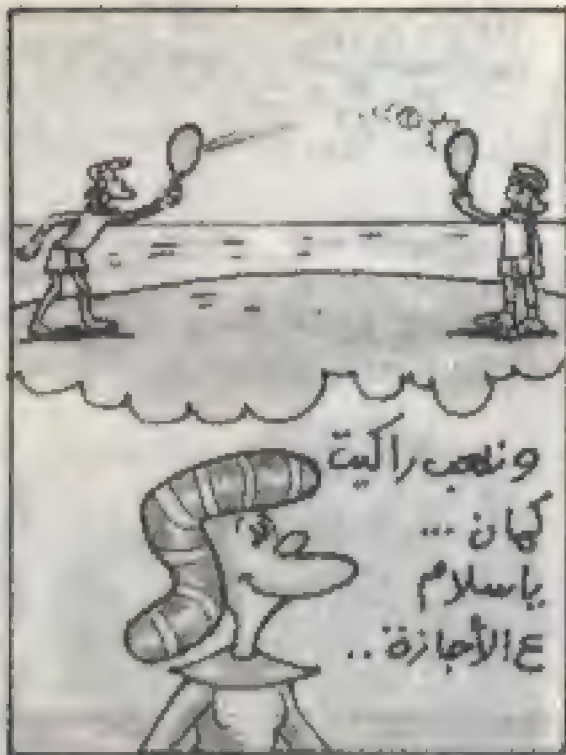 ونلعب راكيت
كمان ...
ياسلام
ع الأجازة ..